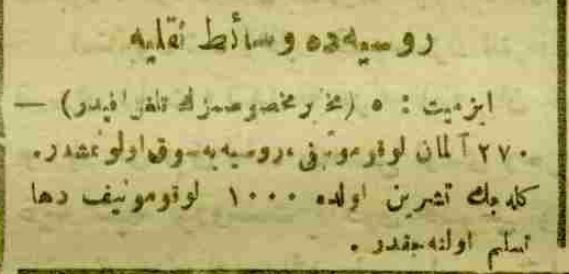 روسیه‌ده وسائط نقلیه
ازمیت : ٥ (مخبر مخصوصمزك تلغرافیدر) —
٢٧٠ آلمان لوقوموتیفی روسیه‌یه سوق اولونمشدر.
كله‌جك تشرین اولده ١٠٠٠ لوقوموتیف دها
تسلیم اولنه‌جقدر .